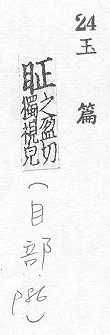 24玉篇
眐
之盈切
獨視皃
(目部.
P86)